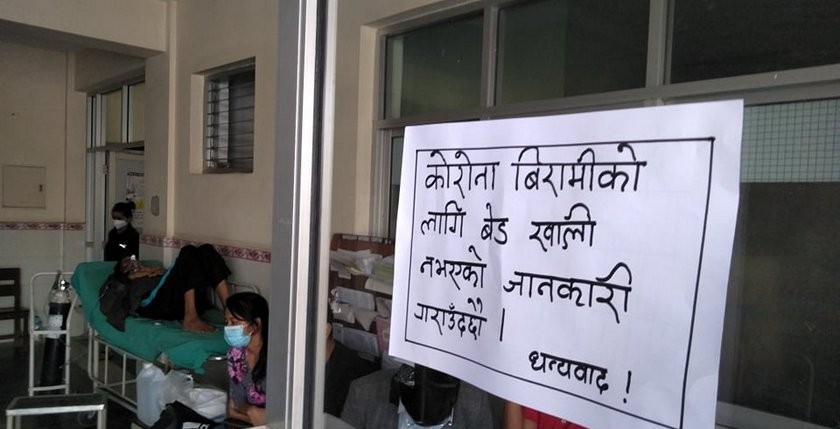 कोरोना बिरामीको
लागि बेड खाली
नभएको जानकारी
गराउँदछौ ।
धन्यवाद !